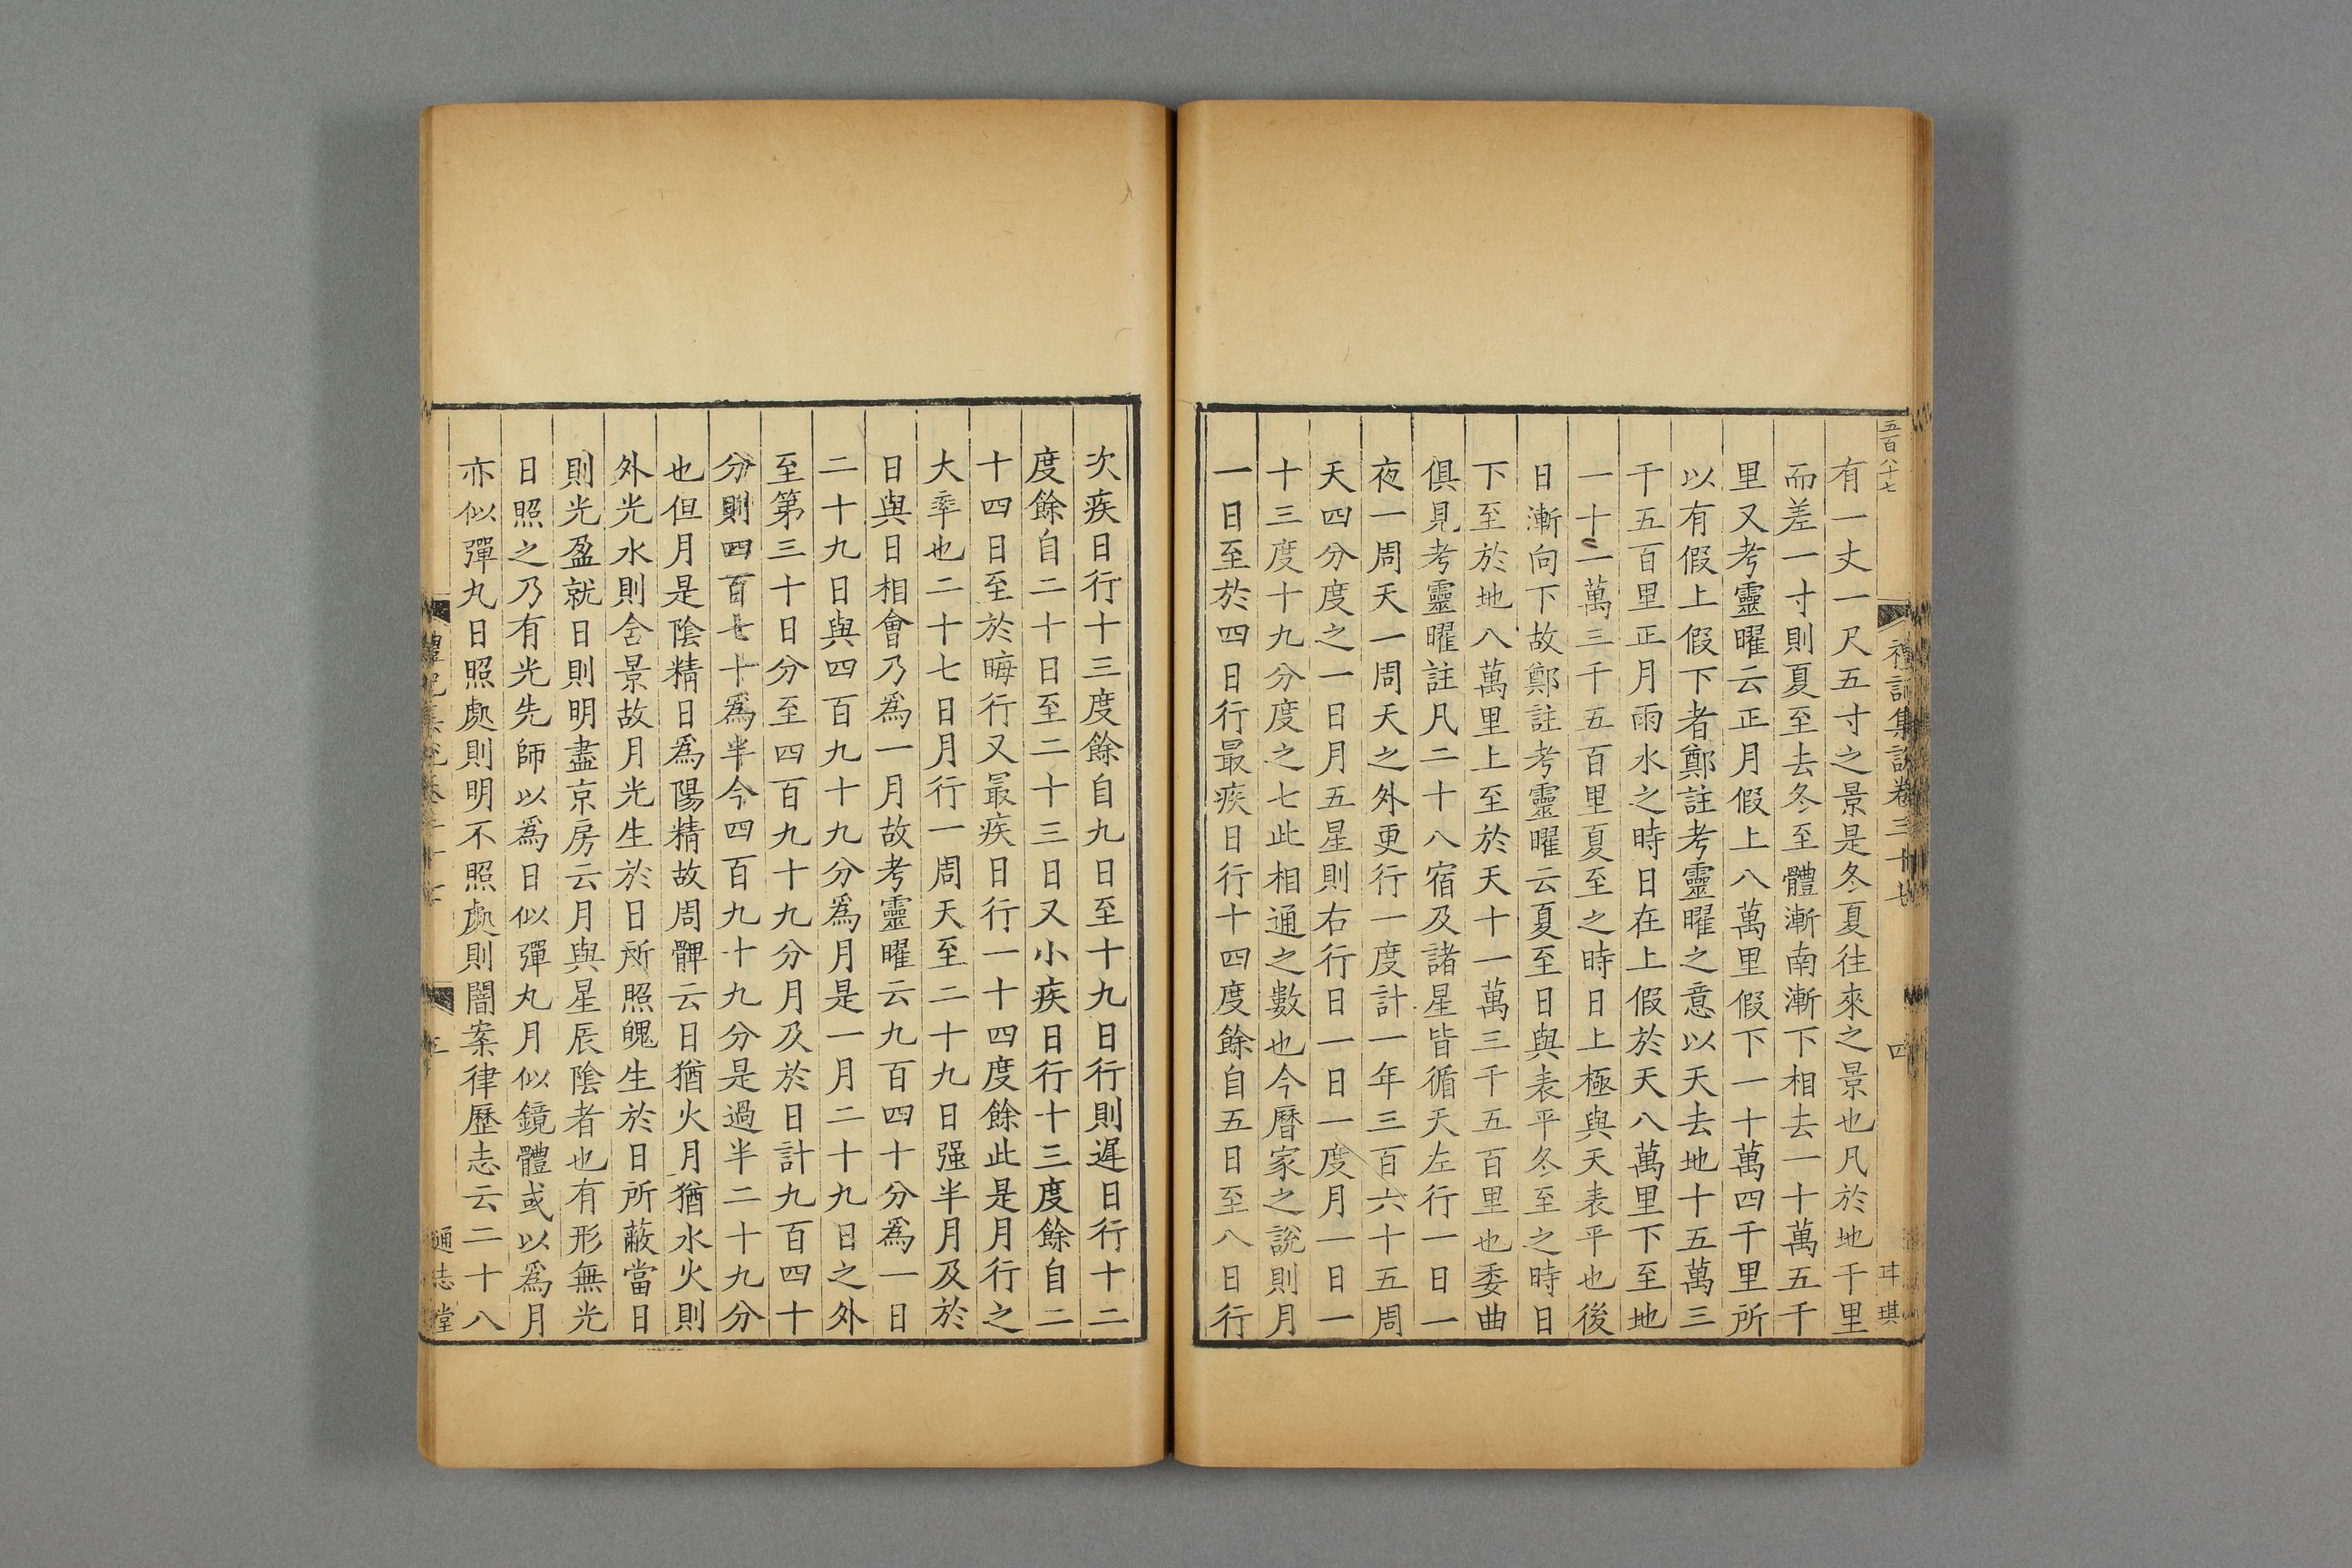 五百八十七
禮記集說卷三十七
四
琪
有一丈一尺五寸之景是冬夏往來之景也凡於地千里
而差一寸則夏至去冬至體漸南漸下相去一十萬五千
里又考靈曜云正月假上八萬里假下一十萬四千里所
以有假上假下者鄭註考靈曜之意以天去地十五萬三
千五百里正月雨水之時日在上假於天八萬里下至地
一十一萬三千五百里夏至之時日上極與天表平也後
日漸向下故鄭註考靈曜云夏至日與表平冬至之時日
下至於地八萬里上至於天十一萬三千五百里也委曲
俱見考靈曜註凡二十八宿及諸星皆循天左行一日一
夜一周天一周天之外更行一度計一年三百六十五周
天四分度之一日月五星則右行日一日一度月一日一
十三度十九分度之七此相通之數也今曆家之說則月
一日至於四日行最疾日行十四度餘自五日至八日行
次疾日行十三度餘自九日至十九日行則遲日行十二
度餘自二十日至二十三日又小疾日行十三度餘自二
十四日至於晦行又最疾日行一十四度餘此是月行之
大率也二十七日月行一周天至二十九日强半月及於
日與日相會乃爲一月故考靈曜云九百四十分爲一日
二十九日與四百九十九分爲月是一月二十九日之外
至第三十日分至四百九十九分月及於日計九百四十
分則四百七十爲半今四百九十九分是過半二十九分
也但月是陰精日爲陽精故周髀云日猶火月猶水火則
外光水則含景故月光生於日所照魄生於日所蔽當日
則光盈就日則明盡京房云月與星辰陰者也有形無光
日照之乃有光先師以爲日似彈丸月似鏡體或以爲月
亦似彈丸日照處則明不照處則闇案律歷志云二十八
通志堂